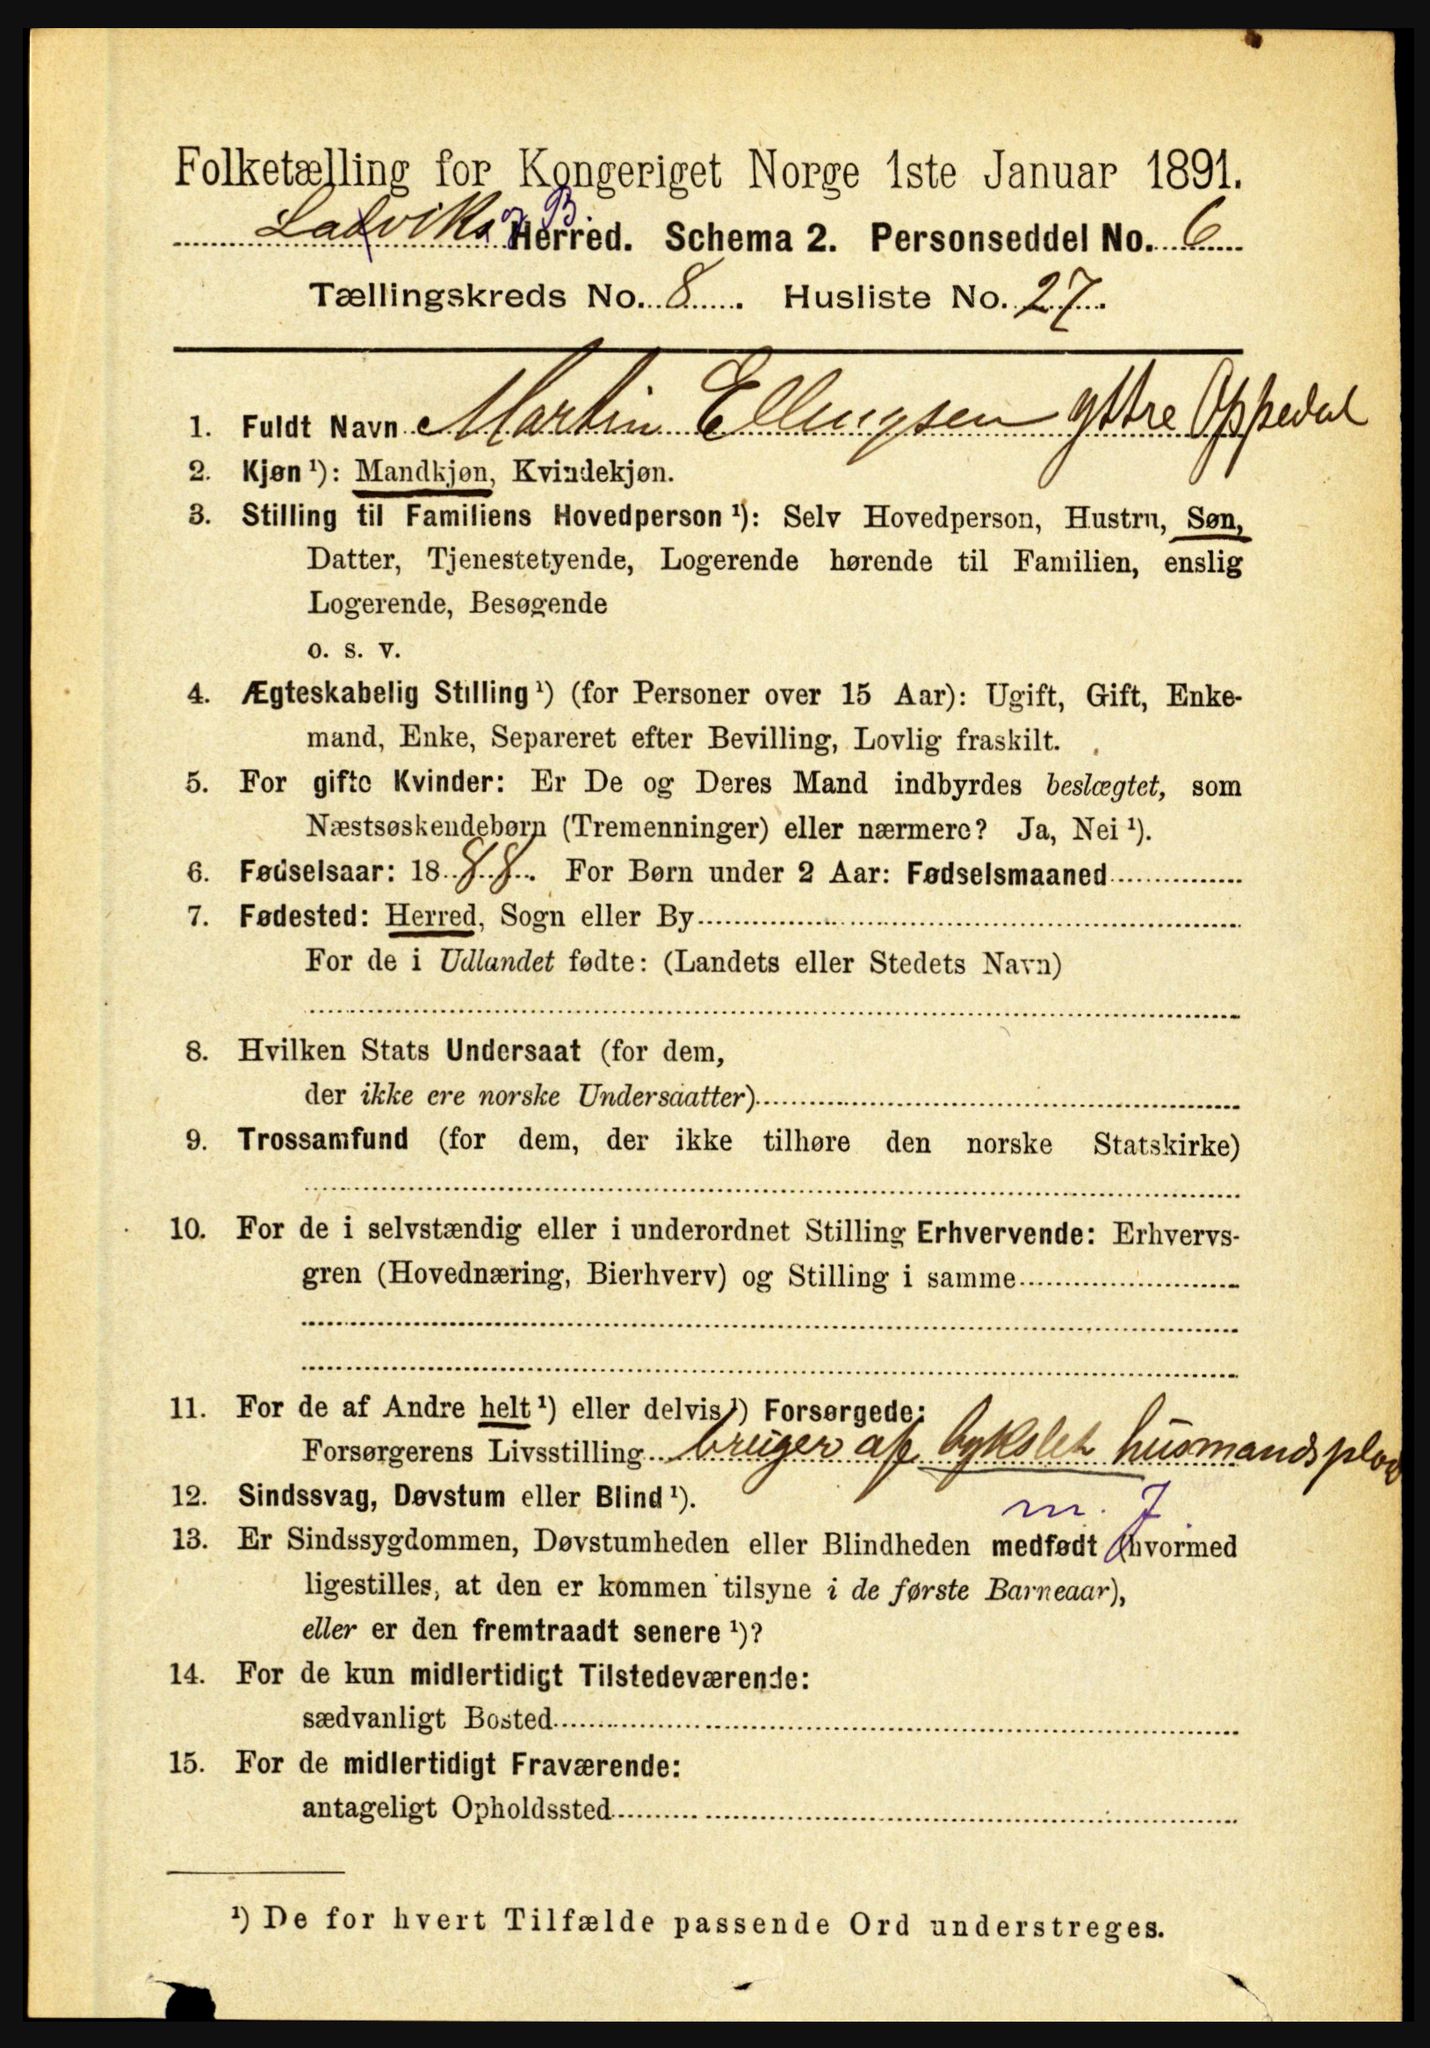 Folketælling for Kongeriget Norge 1ste Januar 1891.
Ladviks og B. Herred. Schema 2. Personseddel No. 6
Tællingskreds No. 8. Husliste No. 27.
1. Fuldt Navn Martin Ellingsen yttre Oppedal
2. Kjøn ¹): Mandkjøn, Kvindekjøn.
3. Stilling til Familiens Hovedperson ¹): Selv Hovedperson, Hustru, Søn,
Datter, Tjenestetyende, Logerende hørende til Familien, enslig
Logerende, Besøgende
o. s. v.
4. Ægteskabelig Stilling ¹) (for Personer over 15 Aar): Ugift, Gift, Enke-
mand, Enke, Separeret efter Bevilling, Lovlig fraskilt.
5. For gifte Kvinder: Er De og Deres Mand indbyrdes beslægtet, som
Næstsøskendebørn (Tremenninger) eller nærmere? Ja, Nei ¹).
6. Fødselsaar: 1888. For Børn under 2 Aar: Fødselsmaaned
7. Fødested: Herred, Sogn eller By
For de i Udlandet fødte: (Landets eller Stedets Navn)
8. Hvilken Stats Undersaat (for dem,
der ikke ere norske Undersaatter)
9. Trossamfund (for dem, der ikke tilhøre den norske Statskirke)
10. For de i selvstændig eller i underordnet Stilling Erhvervende: Erhvervs-
gren (Hovednæring, Bierhverv) og Stilling i samme
11. For de af Andre helt ¹) eller delvis ¹) Forsørgede:
Forsørgerens Livsstilling bruger af bykslet husmandsplads
12. Sindssvag, Døvstum eller Blind ¹). m. J
13. Er Sindssygdommen, Døvstumheden eller Blindheden medfødt (hvormed
ligestilles, at den er kommen tilsyne i de første Barneaar),
eller er den fremtraadt senere ¹)?
14. For de kun midlertidigt Tilstedeværende:
sædvanligt Bosted
15. For de midlertidigt Fraværende:
antageligt Opholdssted
¹) De for hvert Tilfælde passende Ord understreges.